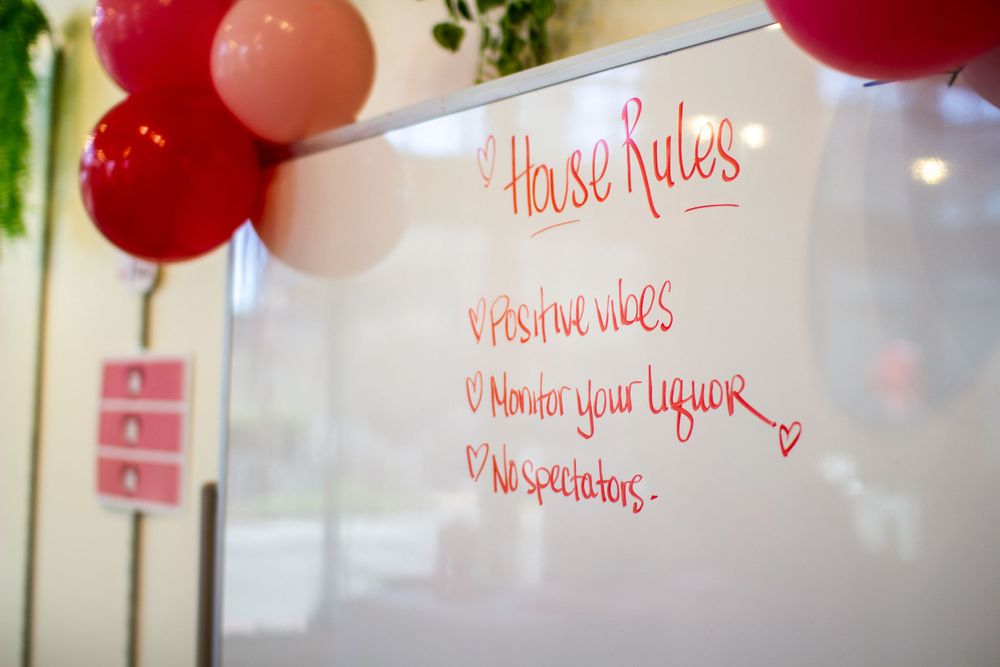 House Rules
Positive vibes
Monitor your liquor
No spectators.